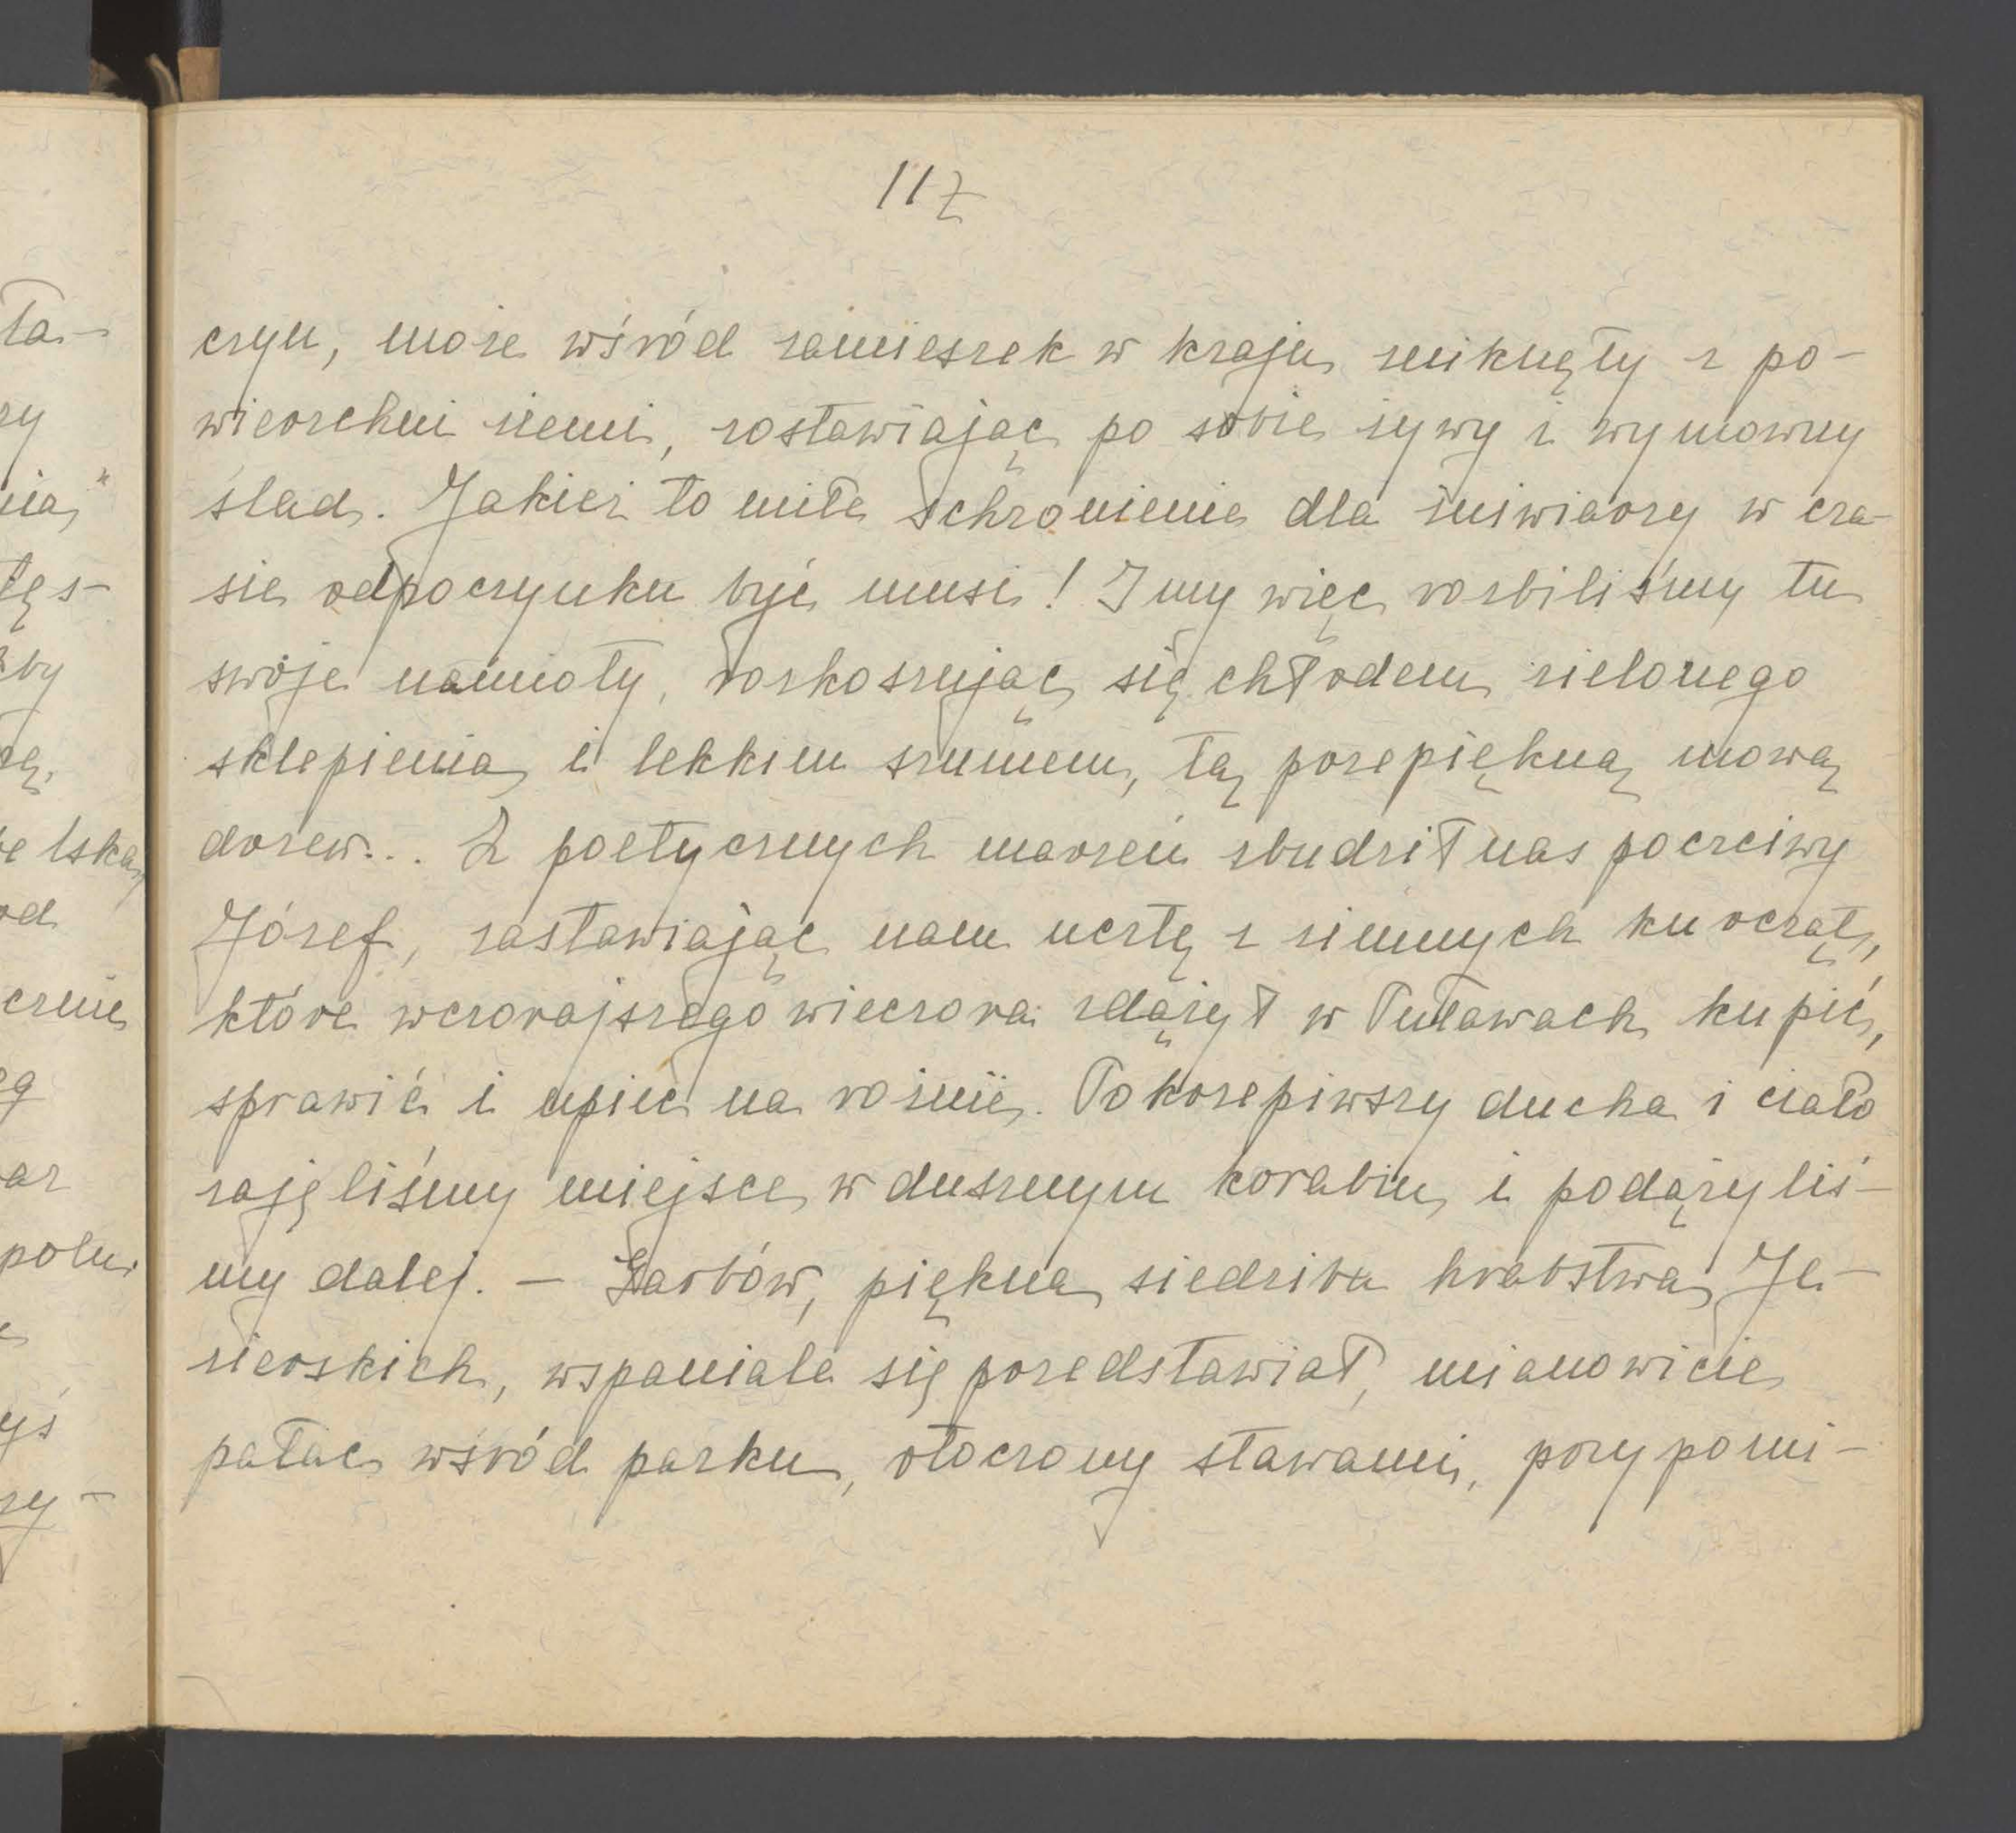 117
czyn, może wśród zamieszek w kraju zniknęły z po-
wierzchni ziemi, zostawiając po sobie żywy i wymowny
ślad. Jakież to miłe schronienie dla żniwiarzy w cza-
sie odpoczynku być musi! I my więc rozbiliśmy tu
swoje namioty, rozkoszując się chłodem zielonego
sklepienia i lekkim szumem, tą przepiękną mową
drzew... Z poetycznych marzeń zbudził nas poczciwy
Józef, zastawiając nam ucztę z zimnych kurcząt,
które wczorajszego wieczora zdążył w Puławach kupić,
sprawić i upiec na rożnie. Pokrzepiwszy ducha i ciało
zajęliśmy miejsce w dusznym korabiu i podążyliś-
my dalej. — Garbów, piękna siedziba hrabstwa Je-
zierskich, wspaniale się przedstawiał, mianowicie
pałac wśród parku, otoczony stawami, przypomi-
ła-
ry
nia"
tęs-
by
cę,
od
czenie
ar
polu
yś
ży-